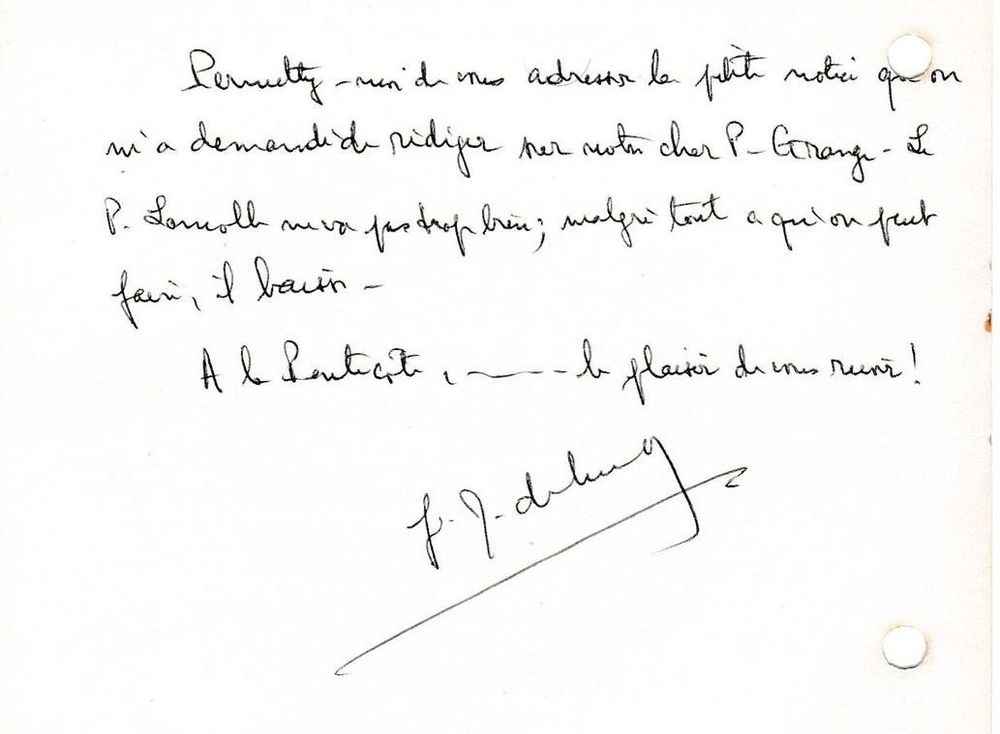 Permettez-moi de vous adresser la petite notice qu'on
m'a demandé de rédiger sur notre cher P. Grange - Le
P. ne va pas trop bien ; malgré tout ce qu'on peut
faire, il baisse -
A la Pentecôte, ——— le plaisir de vous revoir !